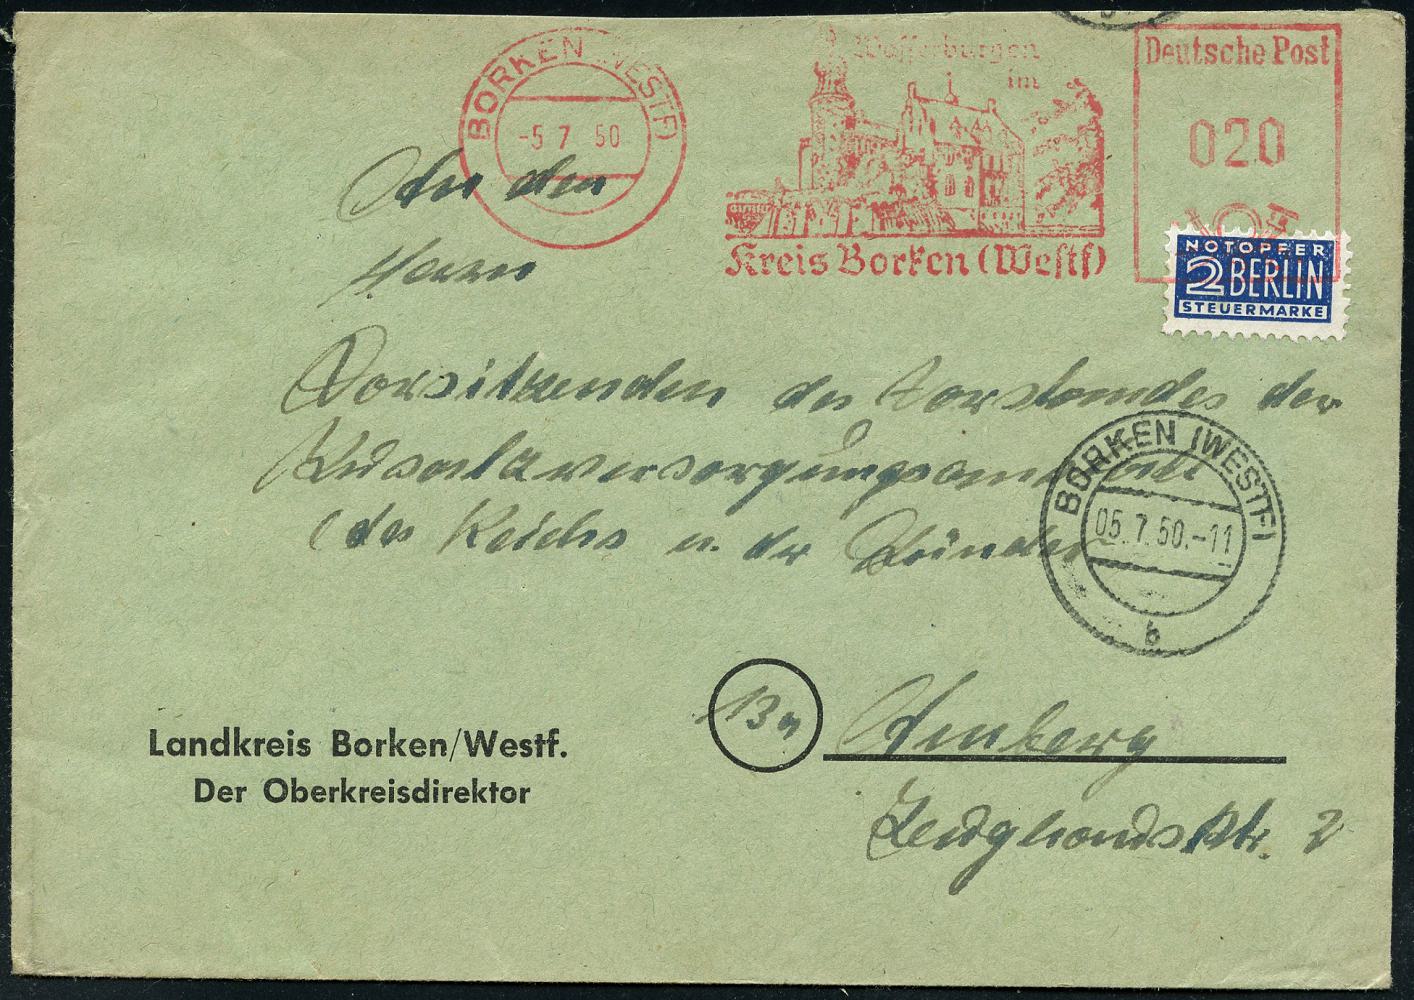 BORKEN (WESTF)
-5 7 50
Wasserburgen
im
Kreis Borken (Westf)
Deutsche Post
020
NOTOPFER
2 BERLIN
STEUERMARKE
An den
Herrn
Vorsitzenden des Vorstandes der
Zusatzversorgungsanstalt
(des Reichs u. der Länder
BORKEN (WESTF)
05.7.50.-11
b
13a
Amberg
Landkreis Borken/Westf.
Der Oberkreisdirektor
Zeughausstr. 2